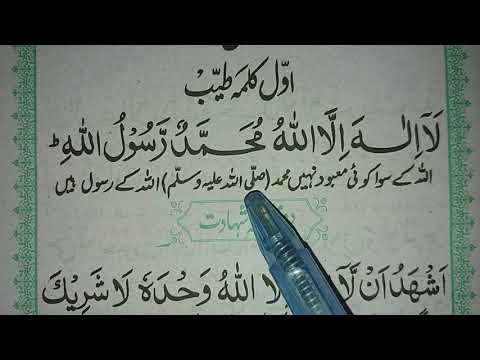 اوّل کلمہ طیّب
لَآ اِلٰـہَ اِلَّا اللہُ مُحَمَّدٌ رَّسُوْلُ اللہِ ؕ
اللہ کے سوا کوئی معبود نہیں محمد (صلّی اللہ علیہ وسلّم) اللہ کے رسول ہیں
شہادت
اَشْھَدُ اَنْ اللہُ وَحْدَہٗ لَا شَرِیْکَ